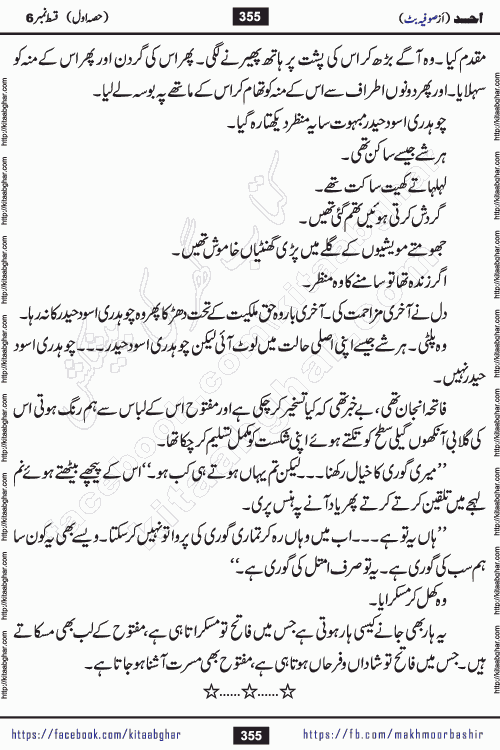 احمد (از صوفیہ بٹ) 355 (حصہ اول) قسط نمبر 6
مقدم کیا۔ وہ آگے بڑھ کر اس کی پشت پر ہاتھ پھیرنے لگی۔ پھر اس کی گردن اور پھر اس کے منہ کو
سہلایا۔ اور پھر دونوں اطراف سے اس کے منہ کو تھام کر اس کے ماتھے پہ بوسہ لے لیا۔
چوہدری اسود حیدر مبہوت سا یہ منظر دیکھتا رہ گیا۔
ہر شے جیسے ساکن تھی۔
لہلہاتے کھیت ساکت تھے۔
گردش کرتی ہوئیں تھم گئی تھیں۔
جھومتے مویشیوں کے گلے میں پڑی گھنٹیاں خاموش تھیں۔
اگر زندہ تھا تو سامنے کا وہ منظر۔
دل نے آخری مزاحمت کی۔ آخری بار وہ حق ملکیت کے تحت دھڑکا پھر وہ چوہدری اسود حیدر کا نہ رہا۔
وہ پلٹی۔ ہر شے جیسے اپنی اصلی حالت میں لوٹ آئی لیکن چوہدری اسود حیدر۔۔۔ چوہدری اسود
حیدر نہیں۔
فاتحہ انجان تھی، بے خبر تھی کہ کیا تسخیر کر چکی ہے اور مفتوح اس کے لباس سے ہم رنگ ہوتی اس
کی گلابی آنکھوں گیلی سطح کو تکتے ہوئے اپنی شکست کو مکمل تسلیم کر چکا تھا۔
’’میری گوری کا خیال رکھنا۔۔۔ لیکن تم یہاں ہوتے ہی کب ہو۔‘‘ اس کے پیچھے بیٹھتے ہوئے نم
لہجے میں تلقین کرتے کرتے پھر یاد آنے پہ ہنس پری۔
’’ہاں یہ تو ہے۔۔۔ اب میں وہاں رہ کر تماری گوری کی پروا تو نہیں کر سکتا۔ ویسے بھی یہ کون سا
ہم سب کی گوری ہے۔ یہ تو صرف امتل کی گوری ہے۔‘‘
وہ کھل کر مسکرایا۔
یہ ہار بھی جانے کیسی ہار ہوتی ہے جس میں فاتح تو مسکراتا ہی ہے، مفتوح کے لب بھی مسکاتے
ہیں۔ جس میں فاتح تو شاداں و فرحاں ہوتا ہی ہے، مفتوح بھی مسرت آشنا ہو جاتا ہے۔
☆......☆......☆
https://facebook.com/kitaabghar 355 https://fb.com/makhmoorbashir
http://kitaabghar.com
کتاب گھر کی پیشکش
facebook.com/kitaabghar
kitaabghar.com